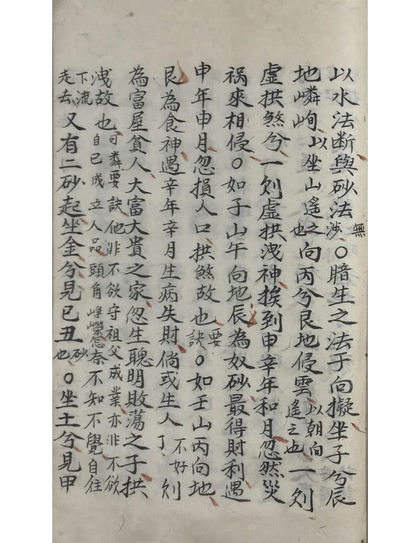 以水法断與砂法無涉○暗生之法子向擬坐子兮辰
地嶙峋以坐山遙之也向丙兮艮地侵雲以朝向遙之也一則
虛拱煞兮一則虛拱洩神挨到申辛年和月忽然災
禍來相侵○如子山午向地辰為奴砂最得財利遇
申年申月忽損人口拱煞故也要訣○如壬山丙向地
艮為食神遇辛年辛月生病失財倘或生人丁不好則
為富屋貧人大富大貴之家忽生聰明敗蕩之子拱
洩故也可憐要訣他非不欲守祖父成業亦非不欲自己成立人品頭角崢嶸奈不知不覺自往
下流走去又有二砂起坐金兮見巳丑砂也○坐土兮見甲